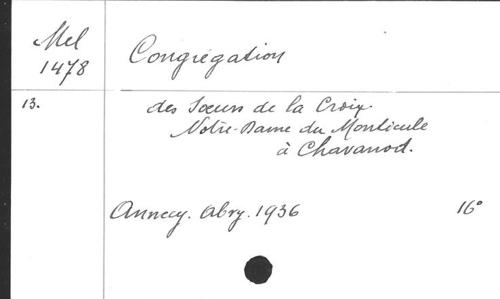 Mel
1478
Congrégation
13.
des Sœurs de la Croix.
Notre-Dame du Monticule
à Chavanod.
Annecy. Abry. 1936
16°